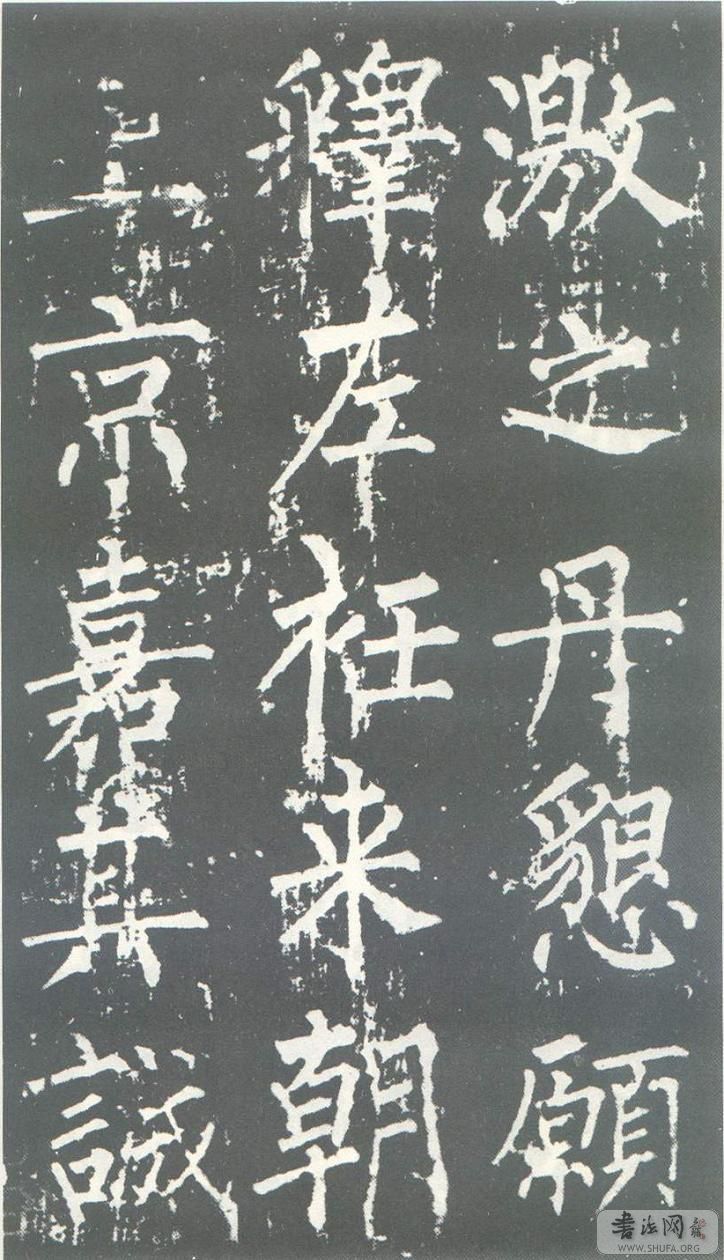 激之丹懇願
釋左衽来朝
上京嘉其誠
书法网
WWW.SHUFA.ORG